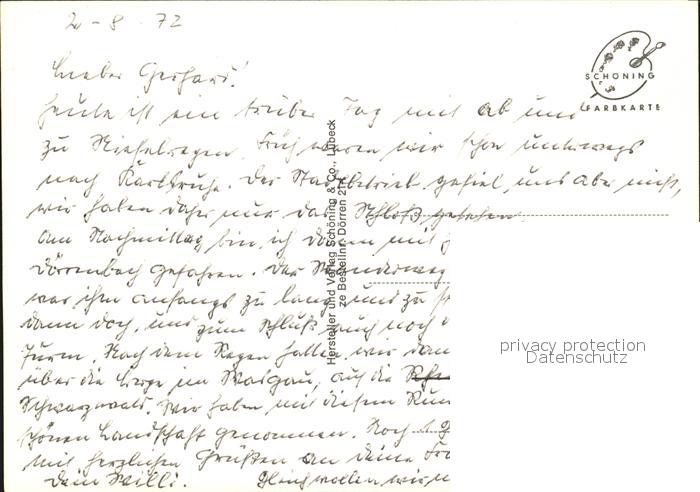 2-8-72
Lieber Gerhard!
heute ist ein trüber Tag mit ab und
zu Nieselregen. Früh waren wir schon unterwegs
nach Karlsruhe. Der Stadtbetrieb gefiel uns aber nicht,
wir haben daher nur das Schloß gesehen
Am Nachmittag bin ich dann mit
Dörrenbach gefahren. Der Wanderweg
war ihm anfangs zu lang und zu
dann doch, und zum Schluß auch noch
Turm. Nach dem Regen hatten wir dann
über die Berge im Wasgau, auf die
Schwarzwald. Wir haben mit diesem
schönen Landschaft genommen. Noch
mit herzlichen Grüßen an deine
Dein Willi. Gleich wollen wir
SCHÖNING
FARBKARTE
Hersteller und Verlag Schöning & Co., Lübeck
ze Bestellnr. Dörren 21
privacy protection
Datenschutz